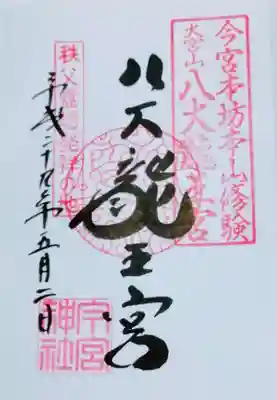 今宮本坊本山修験
大宮山 八大龍王宮
八大龍王宮
秩父霊場発祥の地
平成二十九年五月二日
今宮
神社